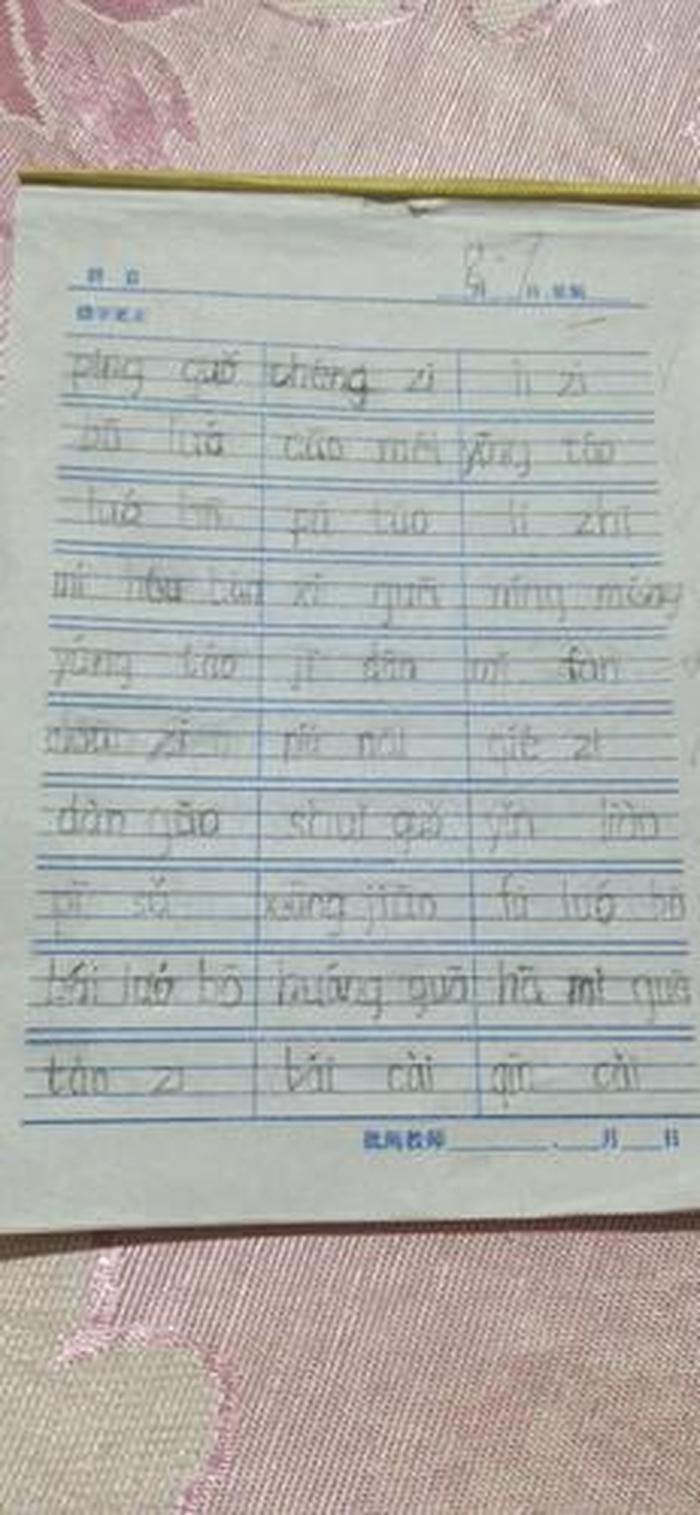 8.7
píng guǒ chéng zi lí zi
bō luó cǎo méi yīng táo
luó bo pú táo lì zhī
mí hóu táo xī guā níng méng
yáng táo jī dàn mǐ fàn
niú nǎi qié zi
dàn gāo shuǐ guǒ yǐn liào
xiāng jiāo hú luó bo
bái luó bō huáng guā hā mì guā
táo zi bái cài qín cài
批阅教师 月 日